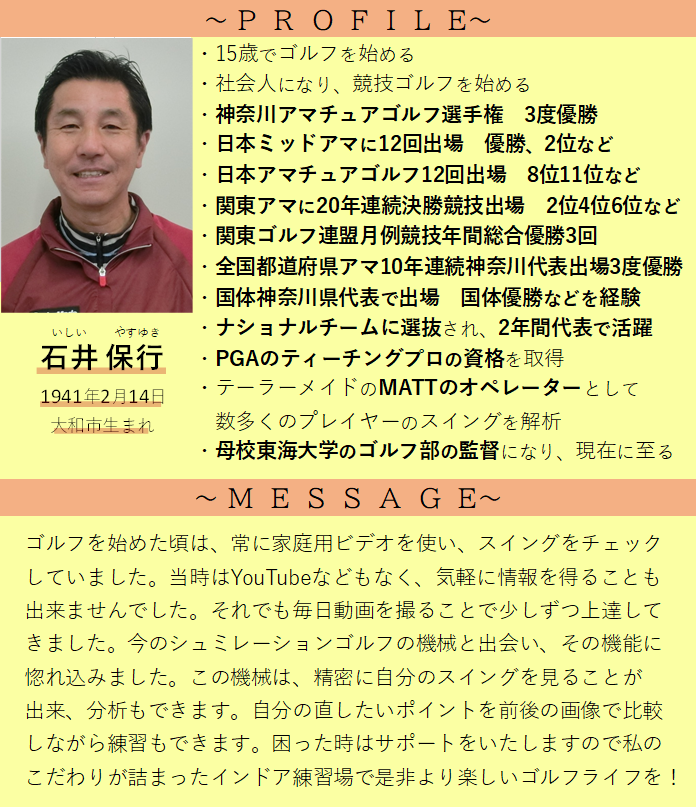 ～ＰＲＯＦＩＬＥ～
・15歳でゴルフを始める
・社会人になり、競技ゴルフを始める
・神奈川アマチュアゴルフ選手権　3度優勝
・日本ミッドアマに12回出場　優勝、2位など
・日本アマチュアゴルフ12回出場　8位11位など
・関東アマに20年連続決勝競技出場　2位4位6位など
・関東ゴルフ連盟月例競技年間総合優勝3回
・全国都道府県アマ10年連続神奈川代表出場3度優勝
・国体神奈川県代表で出場　国体優勝などを経験
・ナショナルチームに選抜され、2年間代表で活躍
・PGAのティーチングプロの資格を取得
・テーラーメイドのMATTのオペレーターとして
数多くのプレイヤーのスイングを解析
・母校東海大学のゴルフ部の監督になり、現在に至る
いしい　やすゆき
石井 保行
1941年2月14日
大和市生まれ
～ＭＥＳＳＡＧＥ～
ゴルフを始めた頃は、常に家庭用ビデオを使い、スイングをチェック
していました。当時はYouTubeなどもなく、気軽に情報を得ることも
出来ませんでした。それでも毎日動画を撮ることで少しずつ上達して
きました。今のシュミレーションゴルフの機械と出会い、その機能に
惚れ込みました。この機械は、精密に自分のスイングを見ることが
出来、分析もできます。自分の直したいポイントを前後の画像で比較
しながら練習もできます。困った時はサポートをいたしますので私の
こだわりが詰まったインドア練習場で是非より楽しいゴルフライフを！